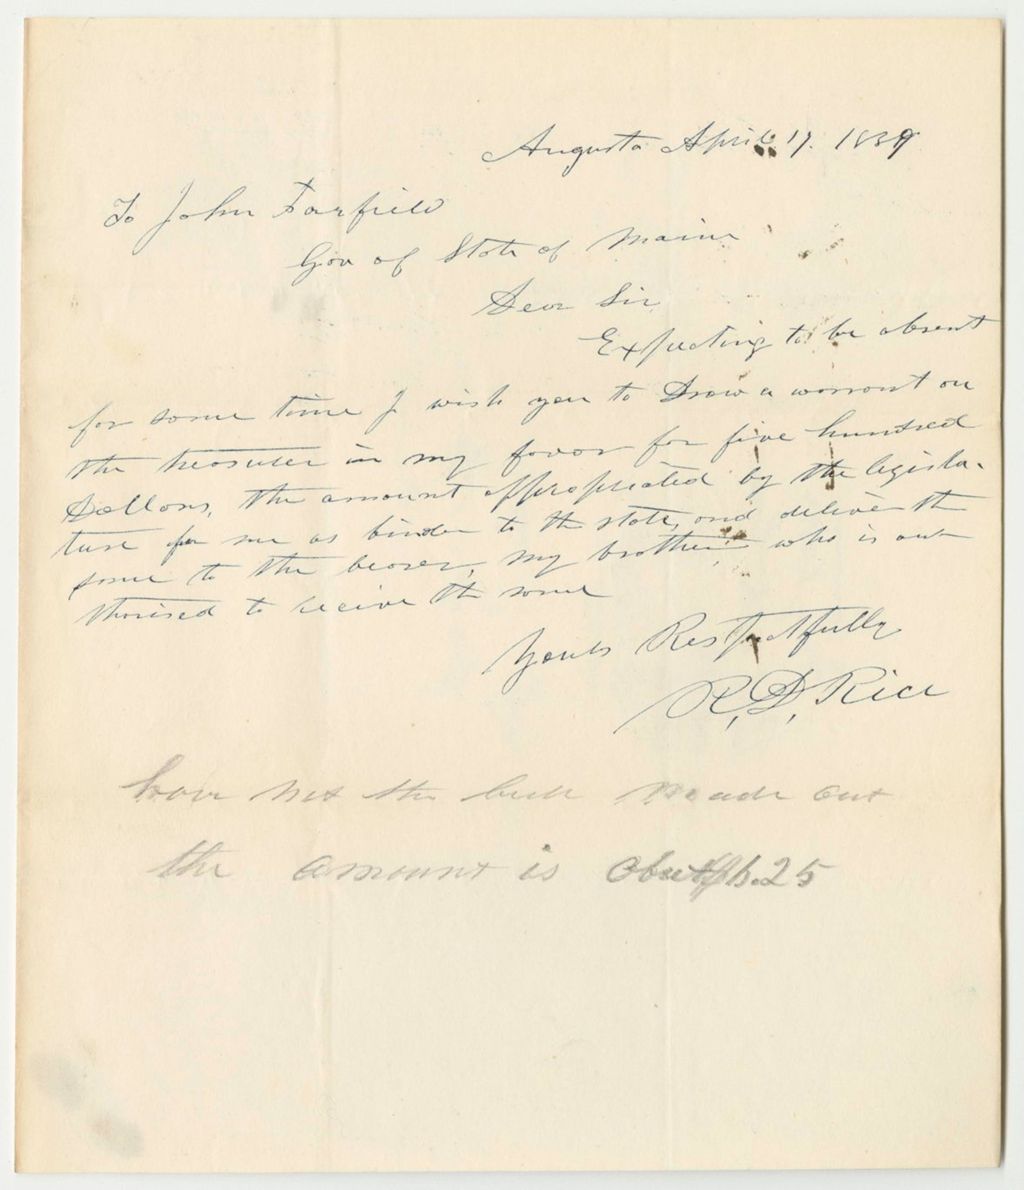 Augusta April 17. 1839
To John Farfield
Gov of State of Maine
Dear Sir
Expecting to be absent
for some time I wish you to Draw a warrant on
the treasurer in my favor for five hundred
Dollars, the amount appropriated by the legisla-
ture for me as binder to the state, and deliver the
same to the bearer, my brother, who is aut
thorised to receive the same
Yours Respectfully
R. D. Rice
have not the bill made out
the amount is about 25